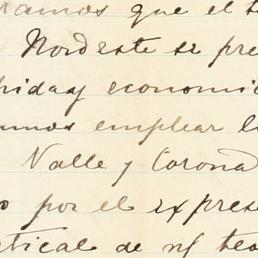 ramos que el t
Nordeste se pre
hiday economic
amos emplear l
Valle y Coroña
o por el expres
ctical de